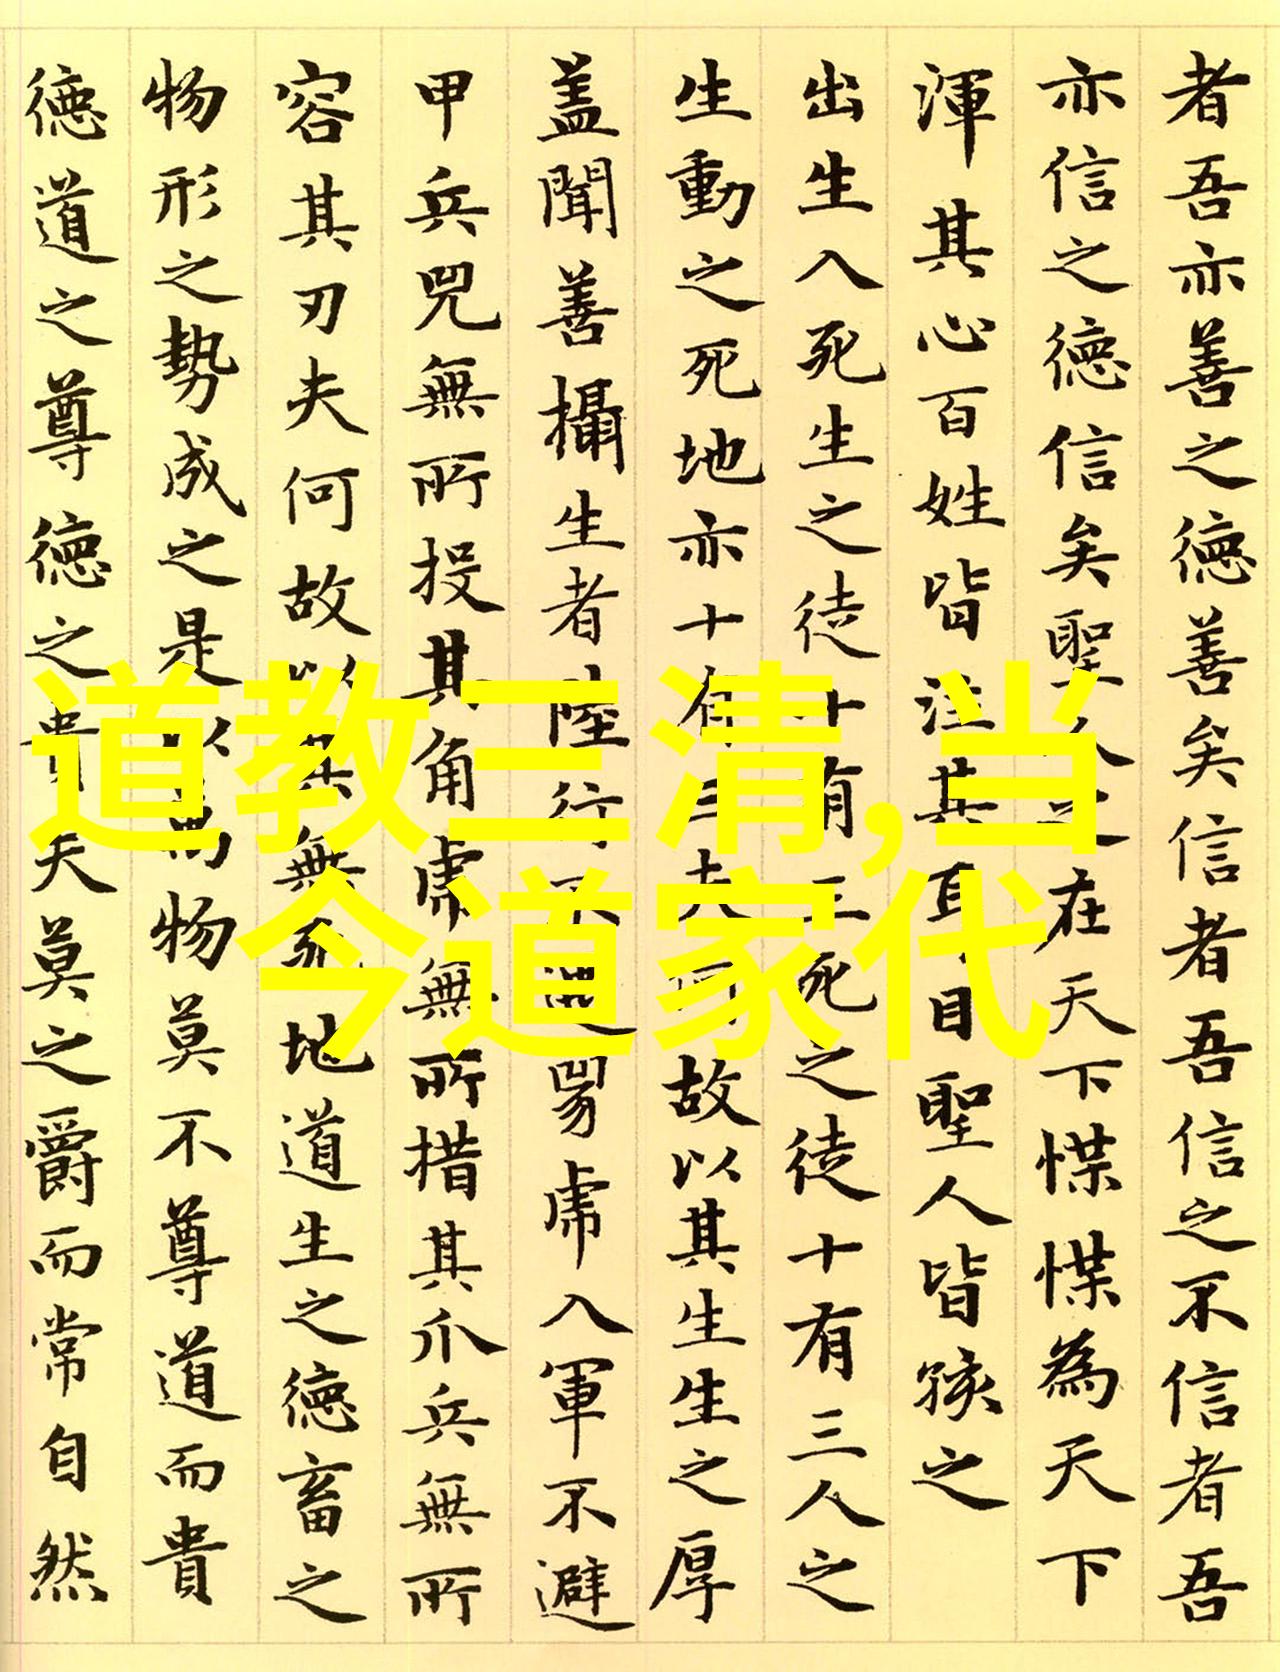 者吾亦善之徳善矣信者吾信之不信者吾
亦信之徳信矣聖人之在天下惵惵為天下
渾其心百姓皆注其耳目聖人皆孩之
出生入死生之徒十有三死之徒十有三人之
生動之死地亦十有三夫何故以其生生之厚
盖聞善攝生者陸行不遇兕虎入軍不避
甲兵兕無所投其角虎無所措其爪兵無所
容其刃夫何故以其無死地道生之徳畜之
物形之勢成之是以萬物莫不尊道而貴
徳道之尊徳之貴夫莫之爵而常自然
道教三清,当
今道家代